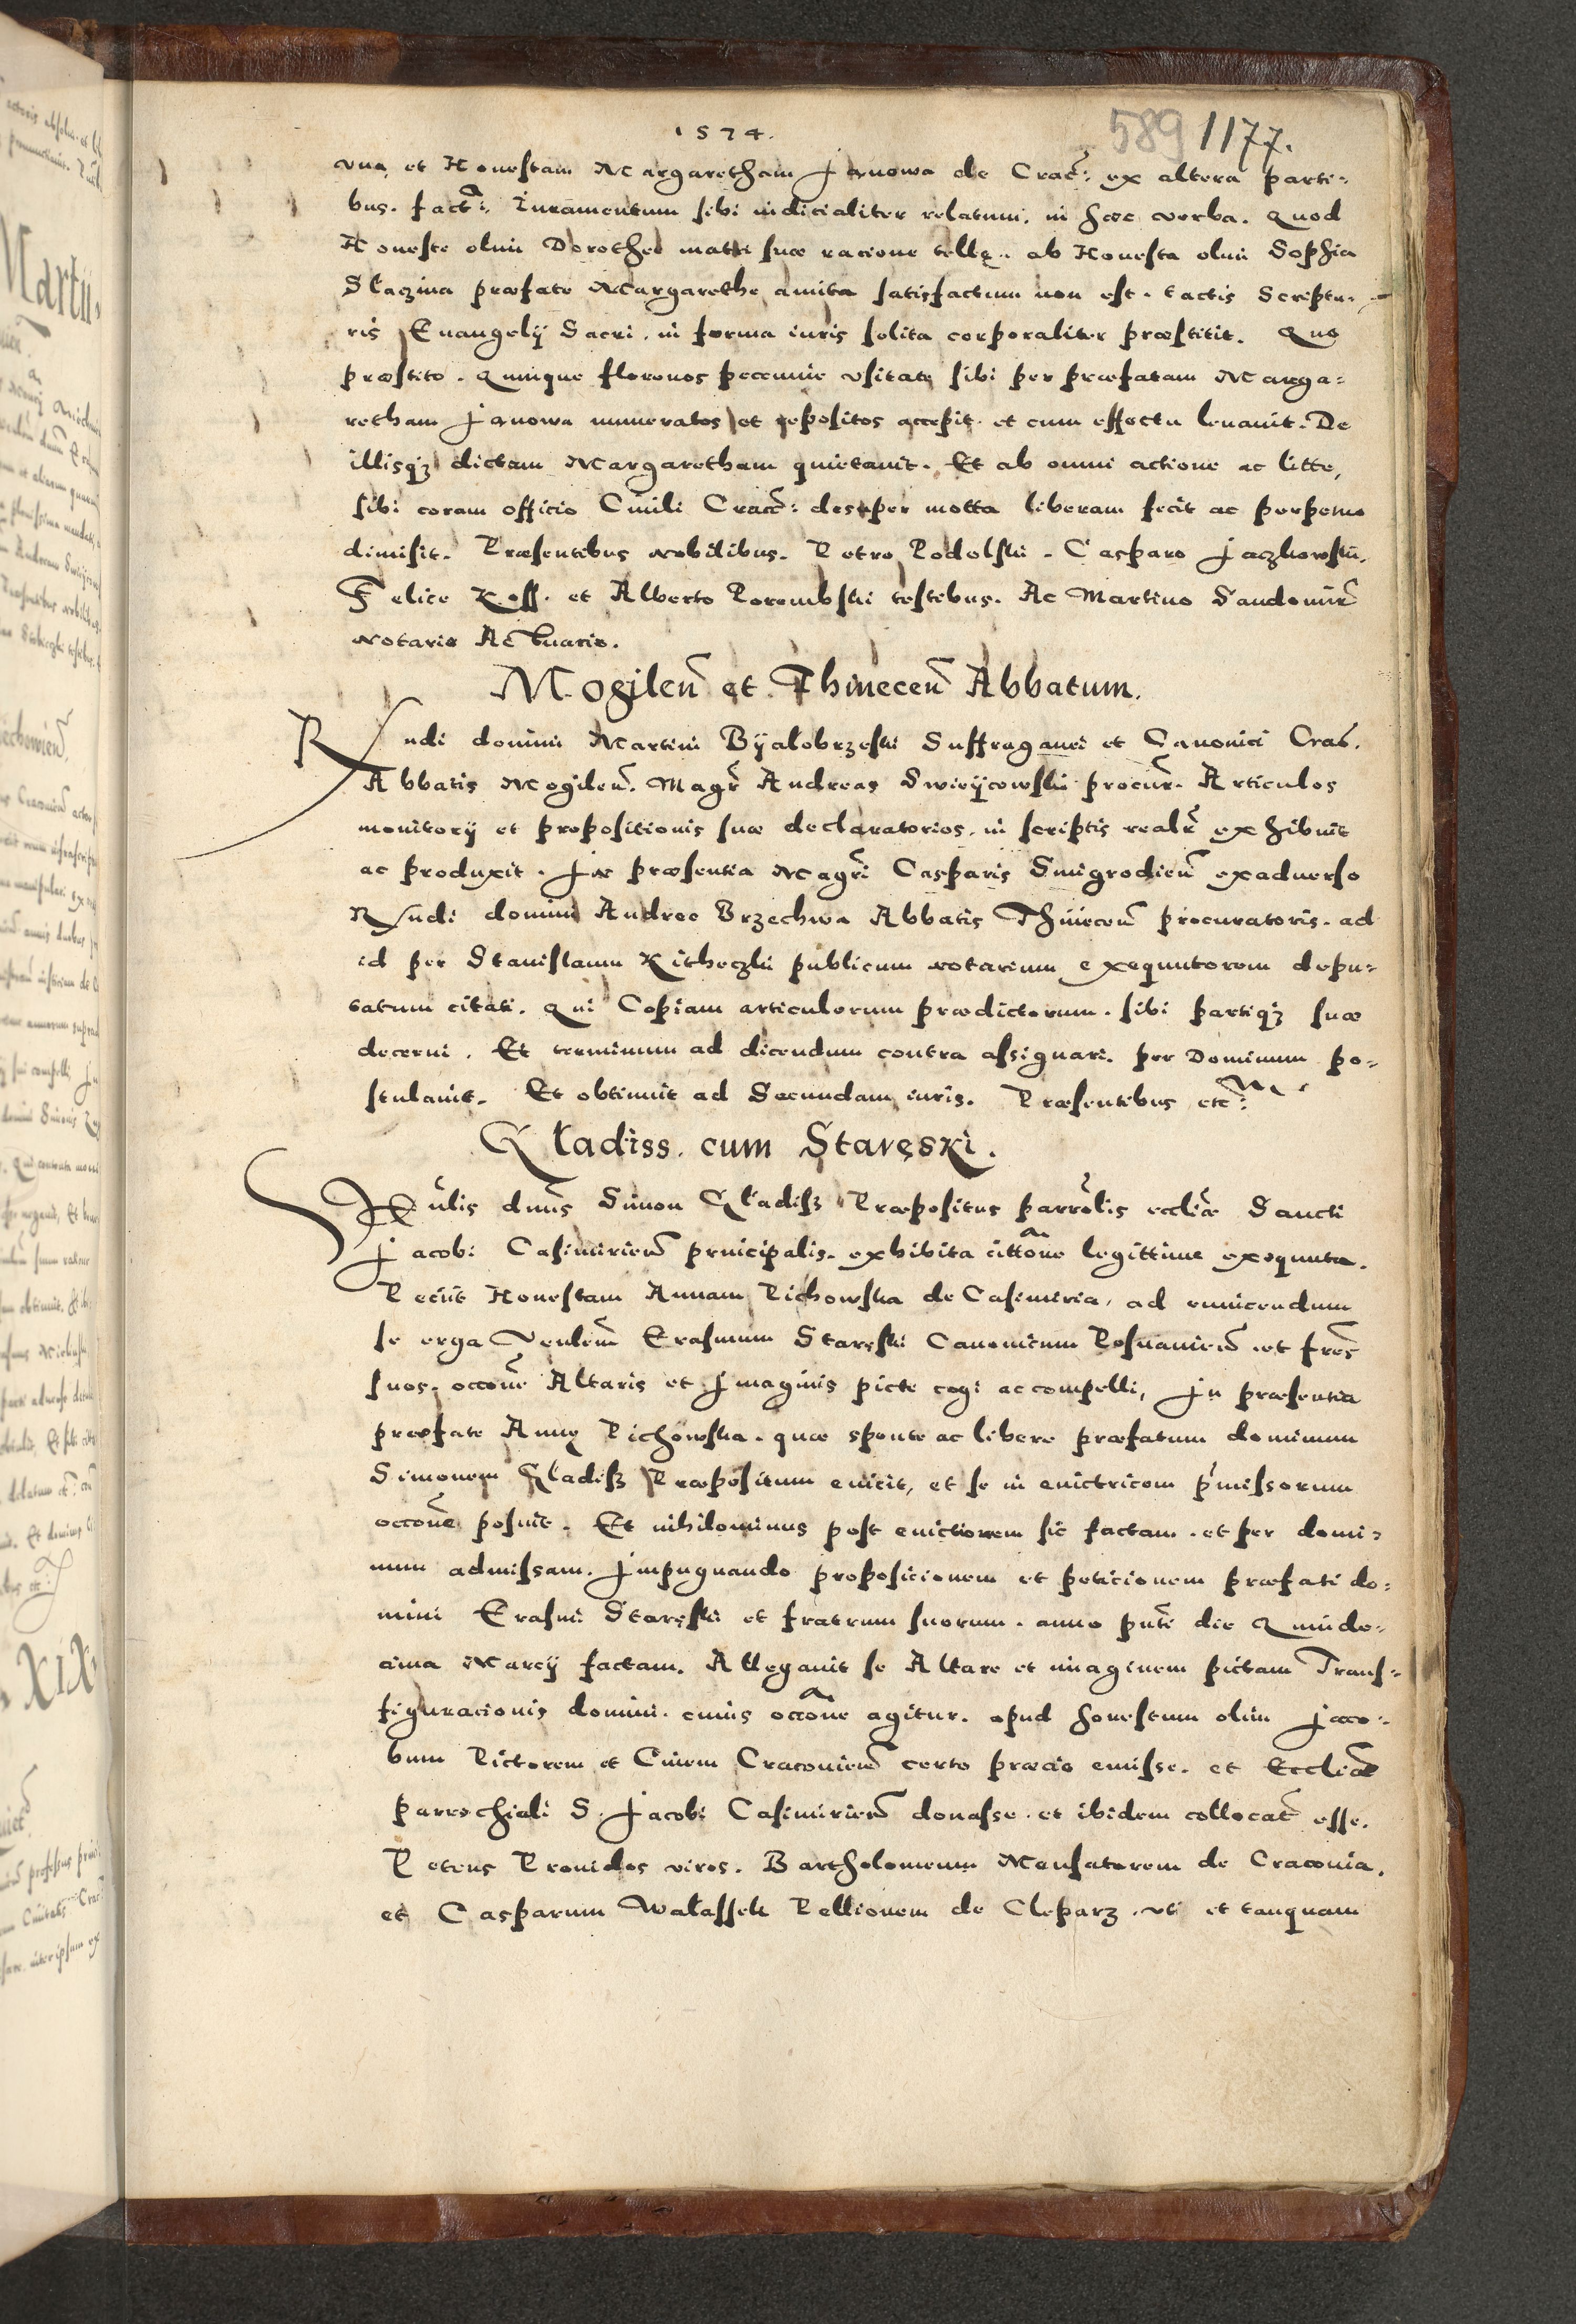 1574.
589 1177.
vna, et Honestam Margaretham Janowa de Crac: ex altera parti-
bus. fact: Iuramentum sibi iudicialiter relatum, in hæc verba. Quod
Honeste olim Dorothee matri suæ racione tellę. ab Honesta olim Sophia
Slaczina præfate Margarethe amita satisfactum non est. tactis Scriptu-
ris Euangelij Sacri. in forma iuris solita corporaliter præstitit. Quo
præstito. Quinque florenos pecunie vsitate sibi per præfatam Marga-
retham Janowa numeratos et repositos accepit et cum effectu leuauit. De
illisqȝ dictam Margaretham quietauit. Et ab omni actione ac litte,
sibi coram officio Ciuili Crac: desuper motta liberam fecit ac perpetuo
dimisit. Præsentibus nobilibus. Petro Podolski. Casparo Jaczkowski,
Felice Koss. et Alberto Porembski testibus. Ac Martino Sandomir
Notario Actuario.
Mogilen et Thinecen Abbatum.
Rndi domini Martini Byalobrzeski Suffraganei et Canonici Crac.
Abbatis Mogilen. Magr Andreas Swieijcowski procur. Articulos
monitorij et propositionis suæ declaratorios. in scriptis realr exhibuit
ac produxit. In præsentia Magri Casparis Smigrodien exaduerso
Rndi domini Andree Brzechwa Abbatis Thinecen procuratoris. ad
id per Stanislaum Kitheczki publicum notarium exequutorem depu-
tatum citati. Qui Copiam articulorum prædictorum. sibi partiqȝ suæ
decerni. Et terminum ad dicendum contra assignari. per Dominum po-
stulauit. Et obtinuit ad Secundam iuris. Præsentibus etc:
Gładiss. cum Staręski.
Vnlis dnus Simon Gładisz Præpositus parrolis ecclie Sancti
Jacobi Casimirien principalis. exhibita cittone legittime exequuta.
Petiit Honestam Annam Pichowska de Casimiria, ad euincendum
se erga Venlem Erasmum Staręski Canonicum Posnanien et fres
suos. occone Altaris et Imaginis picte cogi ac compelli, In præsentia
præfate Annę Pichowska. quæ sponte ac libere præfatum dominum
Simonem Gładisz Præpositum euicit, et se in euictricem pmissorum
occone posuit. Et nihilominus post euictionem sic factam. et per domi-
num admissam. Impugnando proposicionem et peticionem præfati do-
mini Erasmi Staręski et fratrum suorum. anno pnti die Quinde-
cima Marcij factam. Allegauit se Altare et imaginem pictam Trans-
figuracionis domini. cuius occone agitur. apud honestum olim Jaco-
bum Pictorem et Ciuem Cracouien certo præcio emisse. et Ecclie
parrochiali S. Jacobi Casimirien donasse. et ibidem collocat esse.
Petens Prouidos viros. Bartholomeum Mensatorem de Cracouia,
et Casparum Wałassek Pellionem de Cleparz. vti et tanquam